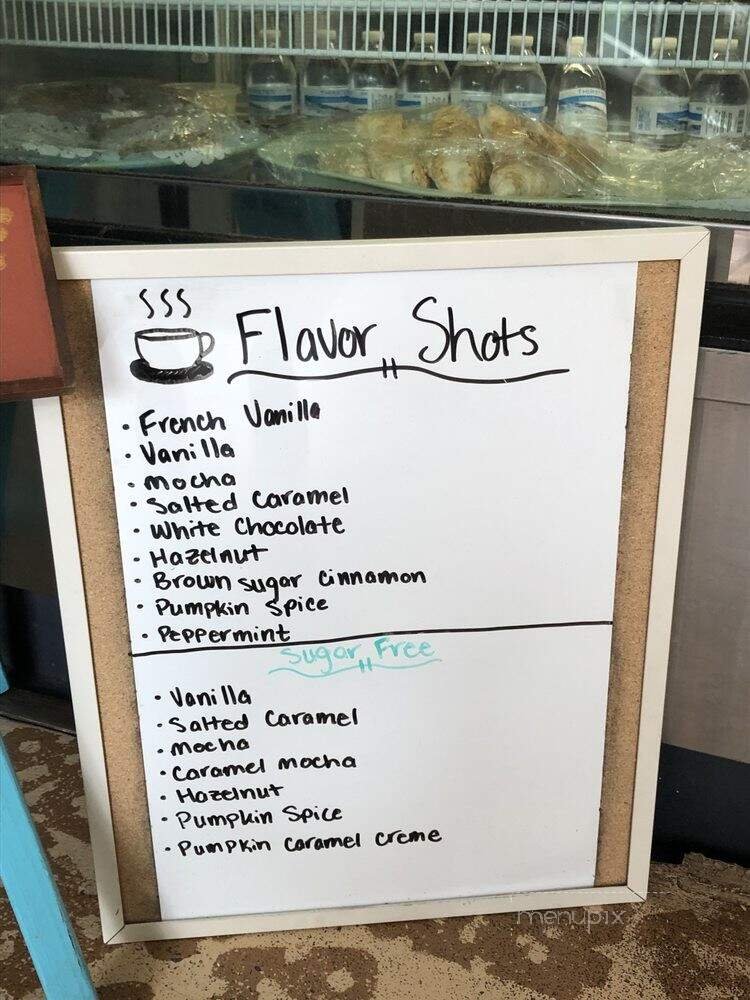 Flavor Shots
• French Vanilla
• Vanilla
• mocha
• Salted Caramel
• White Chocolate
• Hazelnut
• Brown sugar Cinnamon
• Pumpkin Spice
• Peppermint
Sugar Free
• Vanilla
• Salted Caramel
• mocha
• Caramel mocha
• Hazelnut
• Pumpkin Spice
• Pumpkin Caramel Creme
menupix